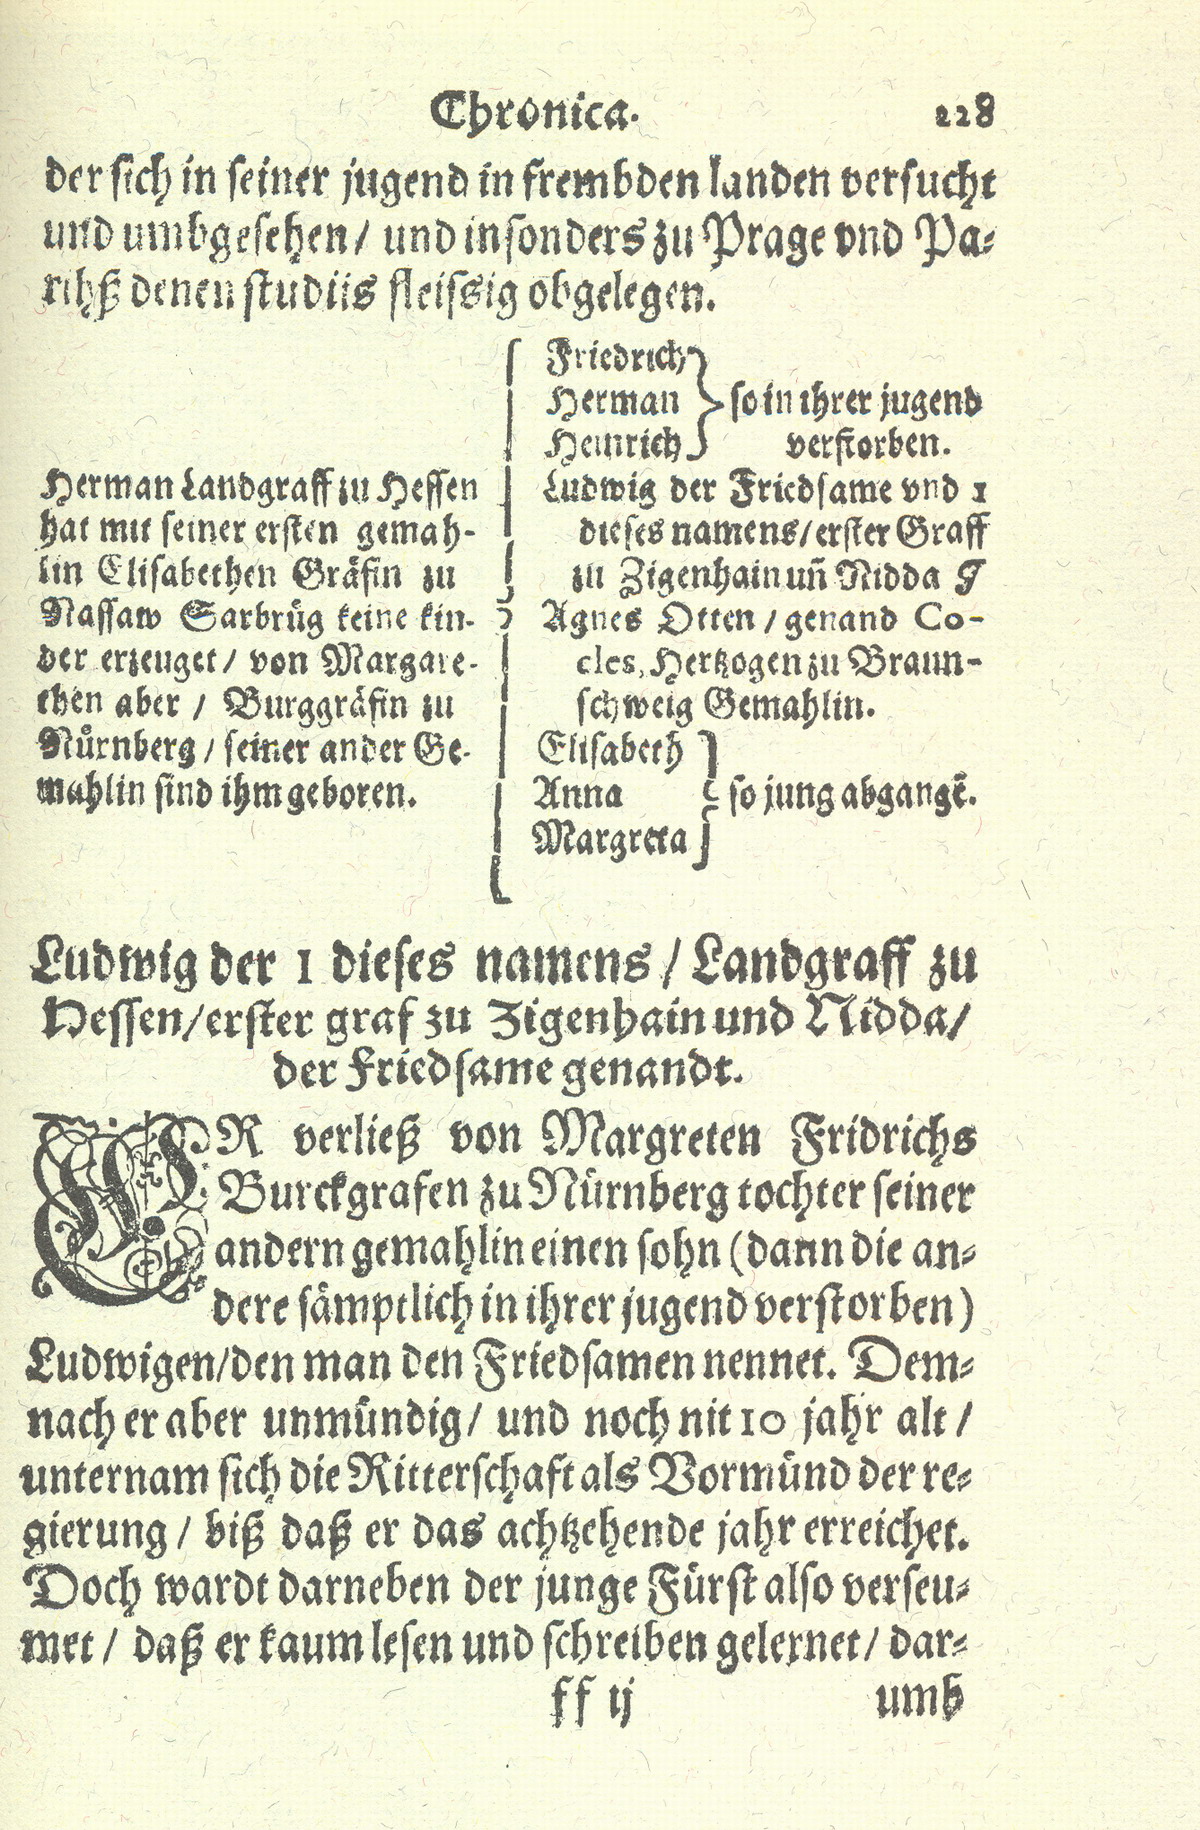 Chronica. 228
der sich in seiner jugend in frembden landen versucht
und umbgesehen / und insonders zu Prage vnd Pa-
rihß denen studiis fleissig obgelegen.
Herman Landgraff zu Hessen
hat mit seiner ersten gemah-
lin Elisabethen Gräfin zu
Nassaw Sarbrüg keine kin-
der erzeuget / von Margare-
then aber / Burggräfin zu
Nürnberg / seiner ander Ge-
mahlin sind ihm geboren.
Friedrich
Herman
Heinrich
so in ihrer jugend
verstorben.
Ludwig der Friedsame vnd 1
dieses namens / erster Graff
zu Zigenhain uñ Nidda
Agnes Otten / genand Co-
cles, Hertzogen zu Braun-
schweig Gemahlin.
Elisabeth
Anna
Margreta
so jung abgangẽ.
Ludwig der 1 dieses namens / Landgraff zu
Hessen / erster graf zu Zigenhain und Nidda /
der Friedsame genandt.
ER verließ von Margreten Fridrichs
Burckgrafen zu Nürnberg tochter seiner
andern gemahlin einen sohn (dann die an-
dere sämptlich in ihrer jugend verstorben)
Ludwigen / den man den Friedsamen nennet. Dem-
nach er aber unmündig / und noch nit 10 jahr alt /
unternam sich die Ritterschaft als Vormünd der re-
gierung / biß daß er das achtzehende jahr erreichet.
Doch wardt darneben der junge Fürst also verseu-
met / daß er kaum lesen und schreiben gelernet / dar-
ff ij umb